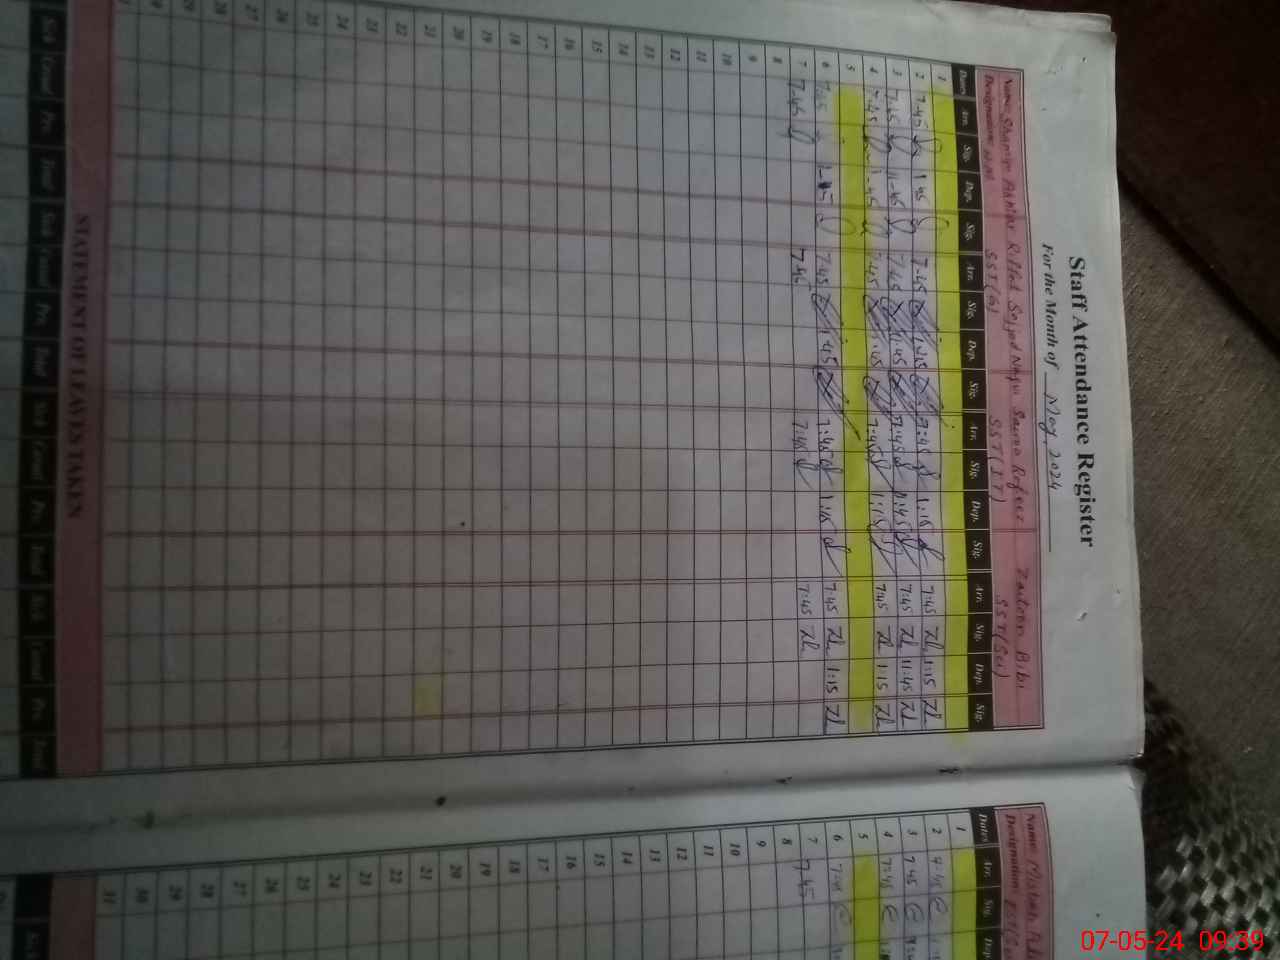 Staff Attendance Register
For the Month of May, 2024
Name: Shamim Akhtar Riffat Sajjad Naqvi Saima Rafeez Zaitoon Bibi
Designation: H.M SST(G) SST(IT) SST(Sci)
Dates Arr. Sig. Dep. Sig. Arr. Sig. Dep. Sig. Arr. Sig. Dep. Sig. Arr. Sig. Dep. Sig.
1
2 7:45 1:45 7:45 7:45 1:15 7:45 Zh 1:15 Zh
3 7:45 11:45 7:45 11:45 7:45 11:45 7:45 Zh 11:45 Zh
4 7:45 1:45 7:45 1:45 7:45 1:15 7:45 Zh 1:15 Zh
5
6 7:45 7:45 1:45 7:45 1:15 7:45 Zh 1:15 Zh
7 7:45 7:45 7:45 7:45 Zh
8
9
10
11
12
13
14
15
16
17
18
19
20
21
22
23
24
25
26
27
28
29
STATEMENT OF LEAVES TAKEN
Sick Casual Prv. Total Sick Casual Prv. Total Sick Casual Prv. Total Sick Casual Prv. Total
Name: Misbah
Designation: EST(Sci
Dates Arr. Sig. Dep
1
2 7:45
3 7:45
4 7:45
5
6 7:45
7 7:45
8
9
10
11
12
13
14
15
16
17
18
19
20
21
22
23
24
25
26
27
28
29
30
31
07-05-24 09:39